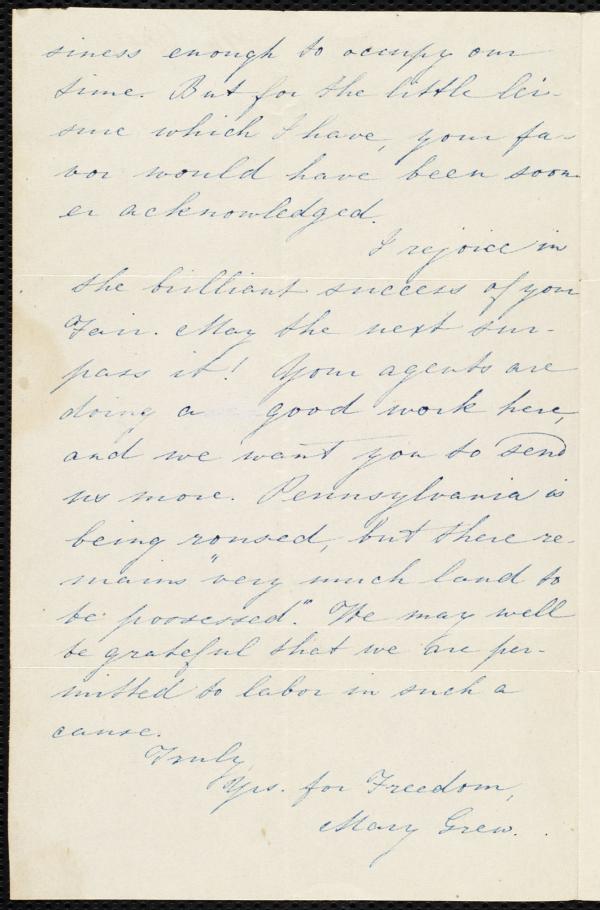 siness enough to occupy our
time. But for the little lei-
sure which I have, your fa-
vor would have been soon-
er acknowledged.
I rejoice in
the brilliant success of your
Fair. May the next sur-
pass it! Your agents are
doing a good work here,
and we want you to send
us more. Pennsylvania is
being roused, but there re-
mains "very much land to
be possessed." We may well
be grateful that we are per-
mitted to labor in such a
cause.
Truly,
Yrs. for Freedom,
Mary Grew.